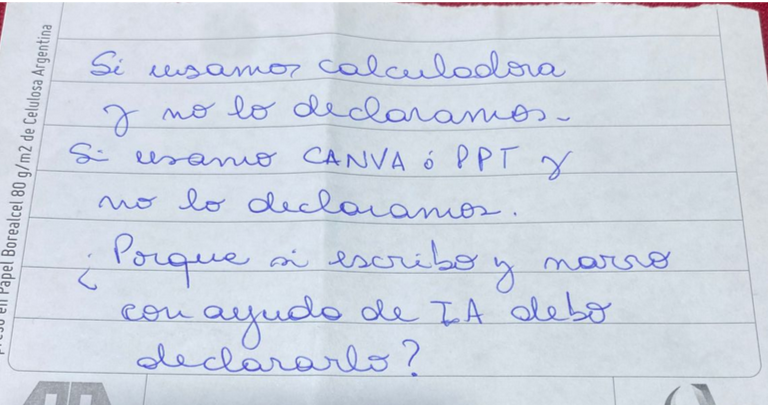 Si usamos calculadora
y no lo declaramos.
Si usamo CANVA ó PPT y
no lo declaramos.
¿Porque si escribo y narro
con ayuda de IA debo
declararlo?
preso en Papel Borealcel 80 g/m2 de Celulosa Argentina